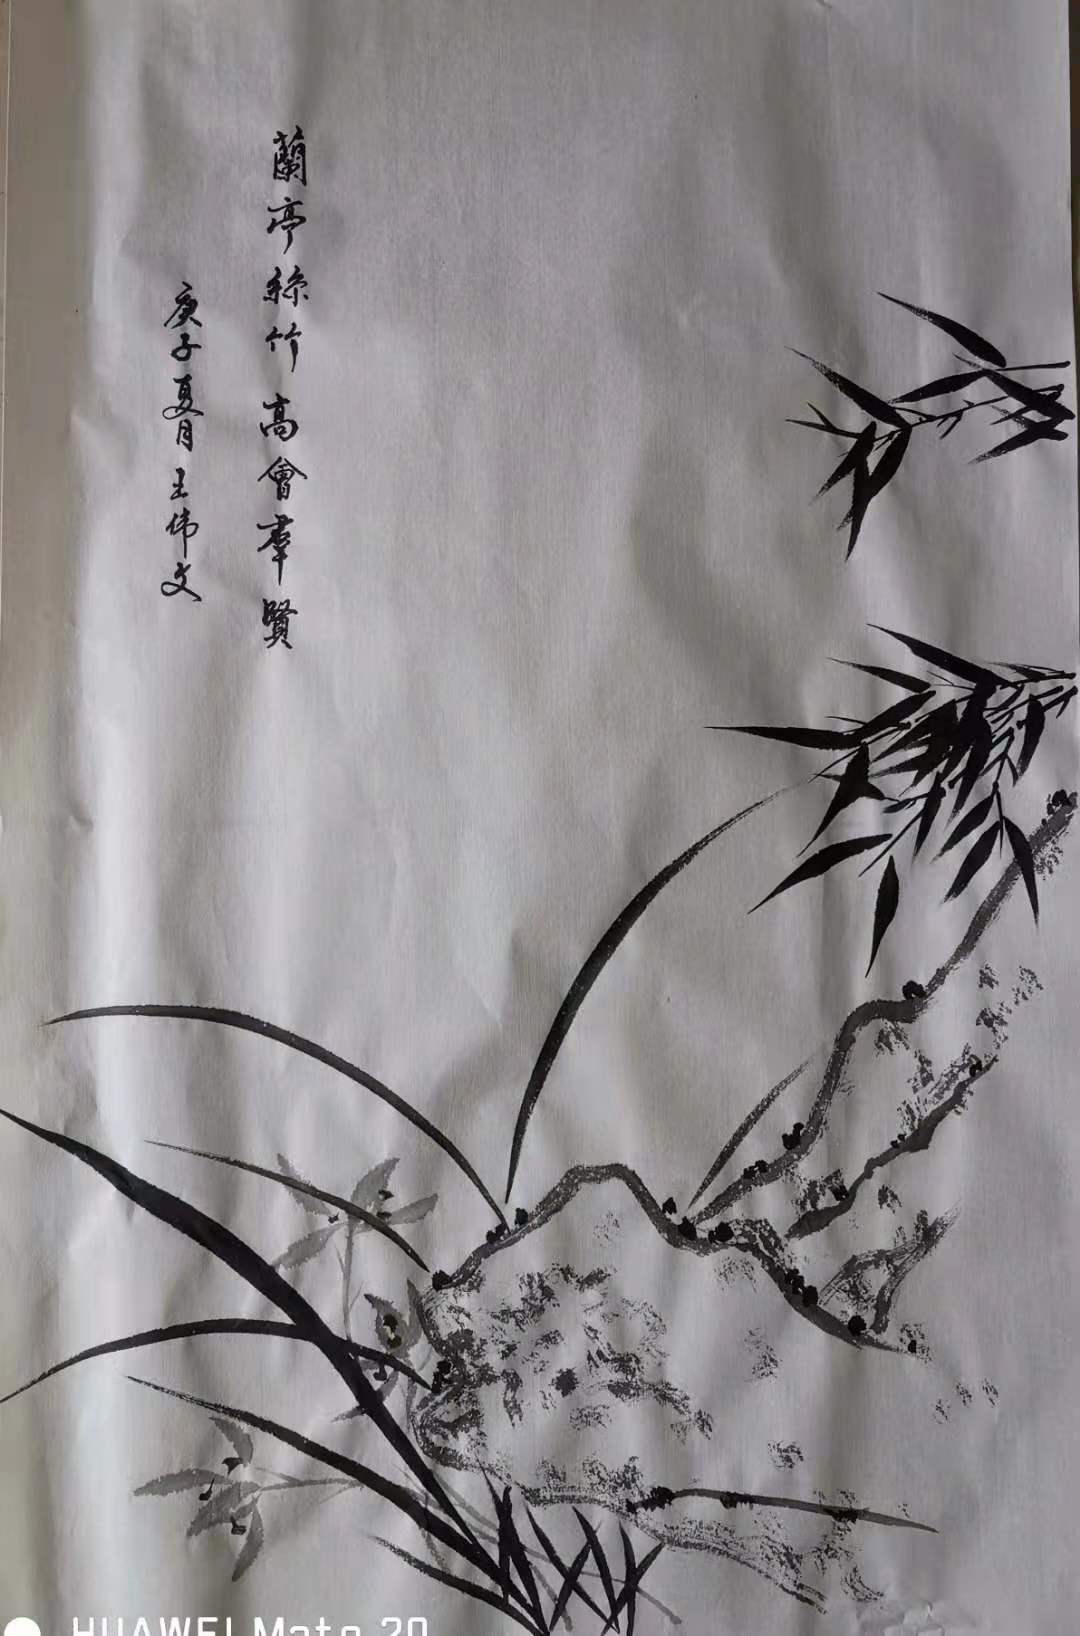 蘭亭絲竹高會羣賢
庚子夏月王伟文
HUAWEI Mate 20